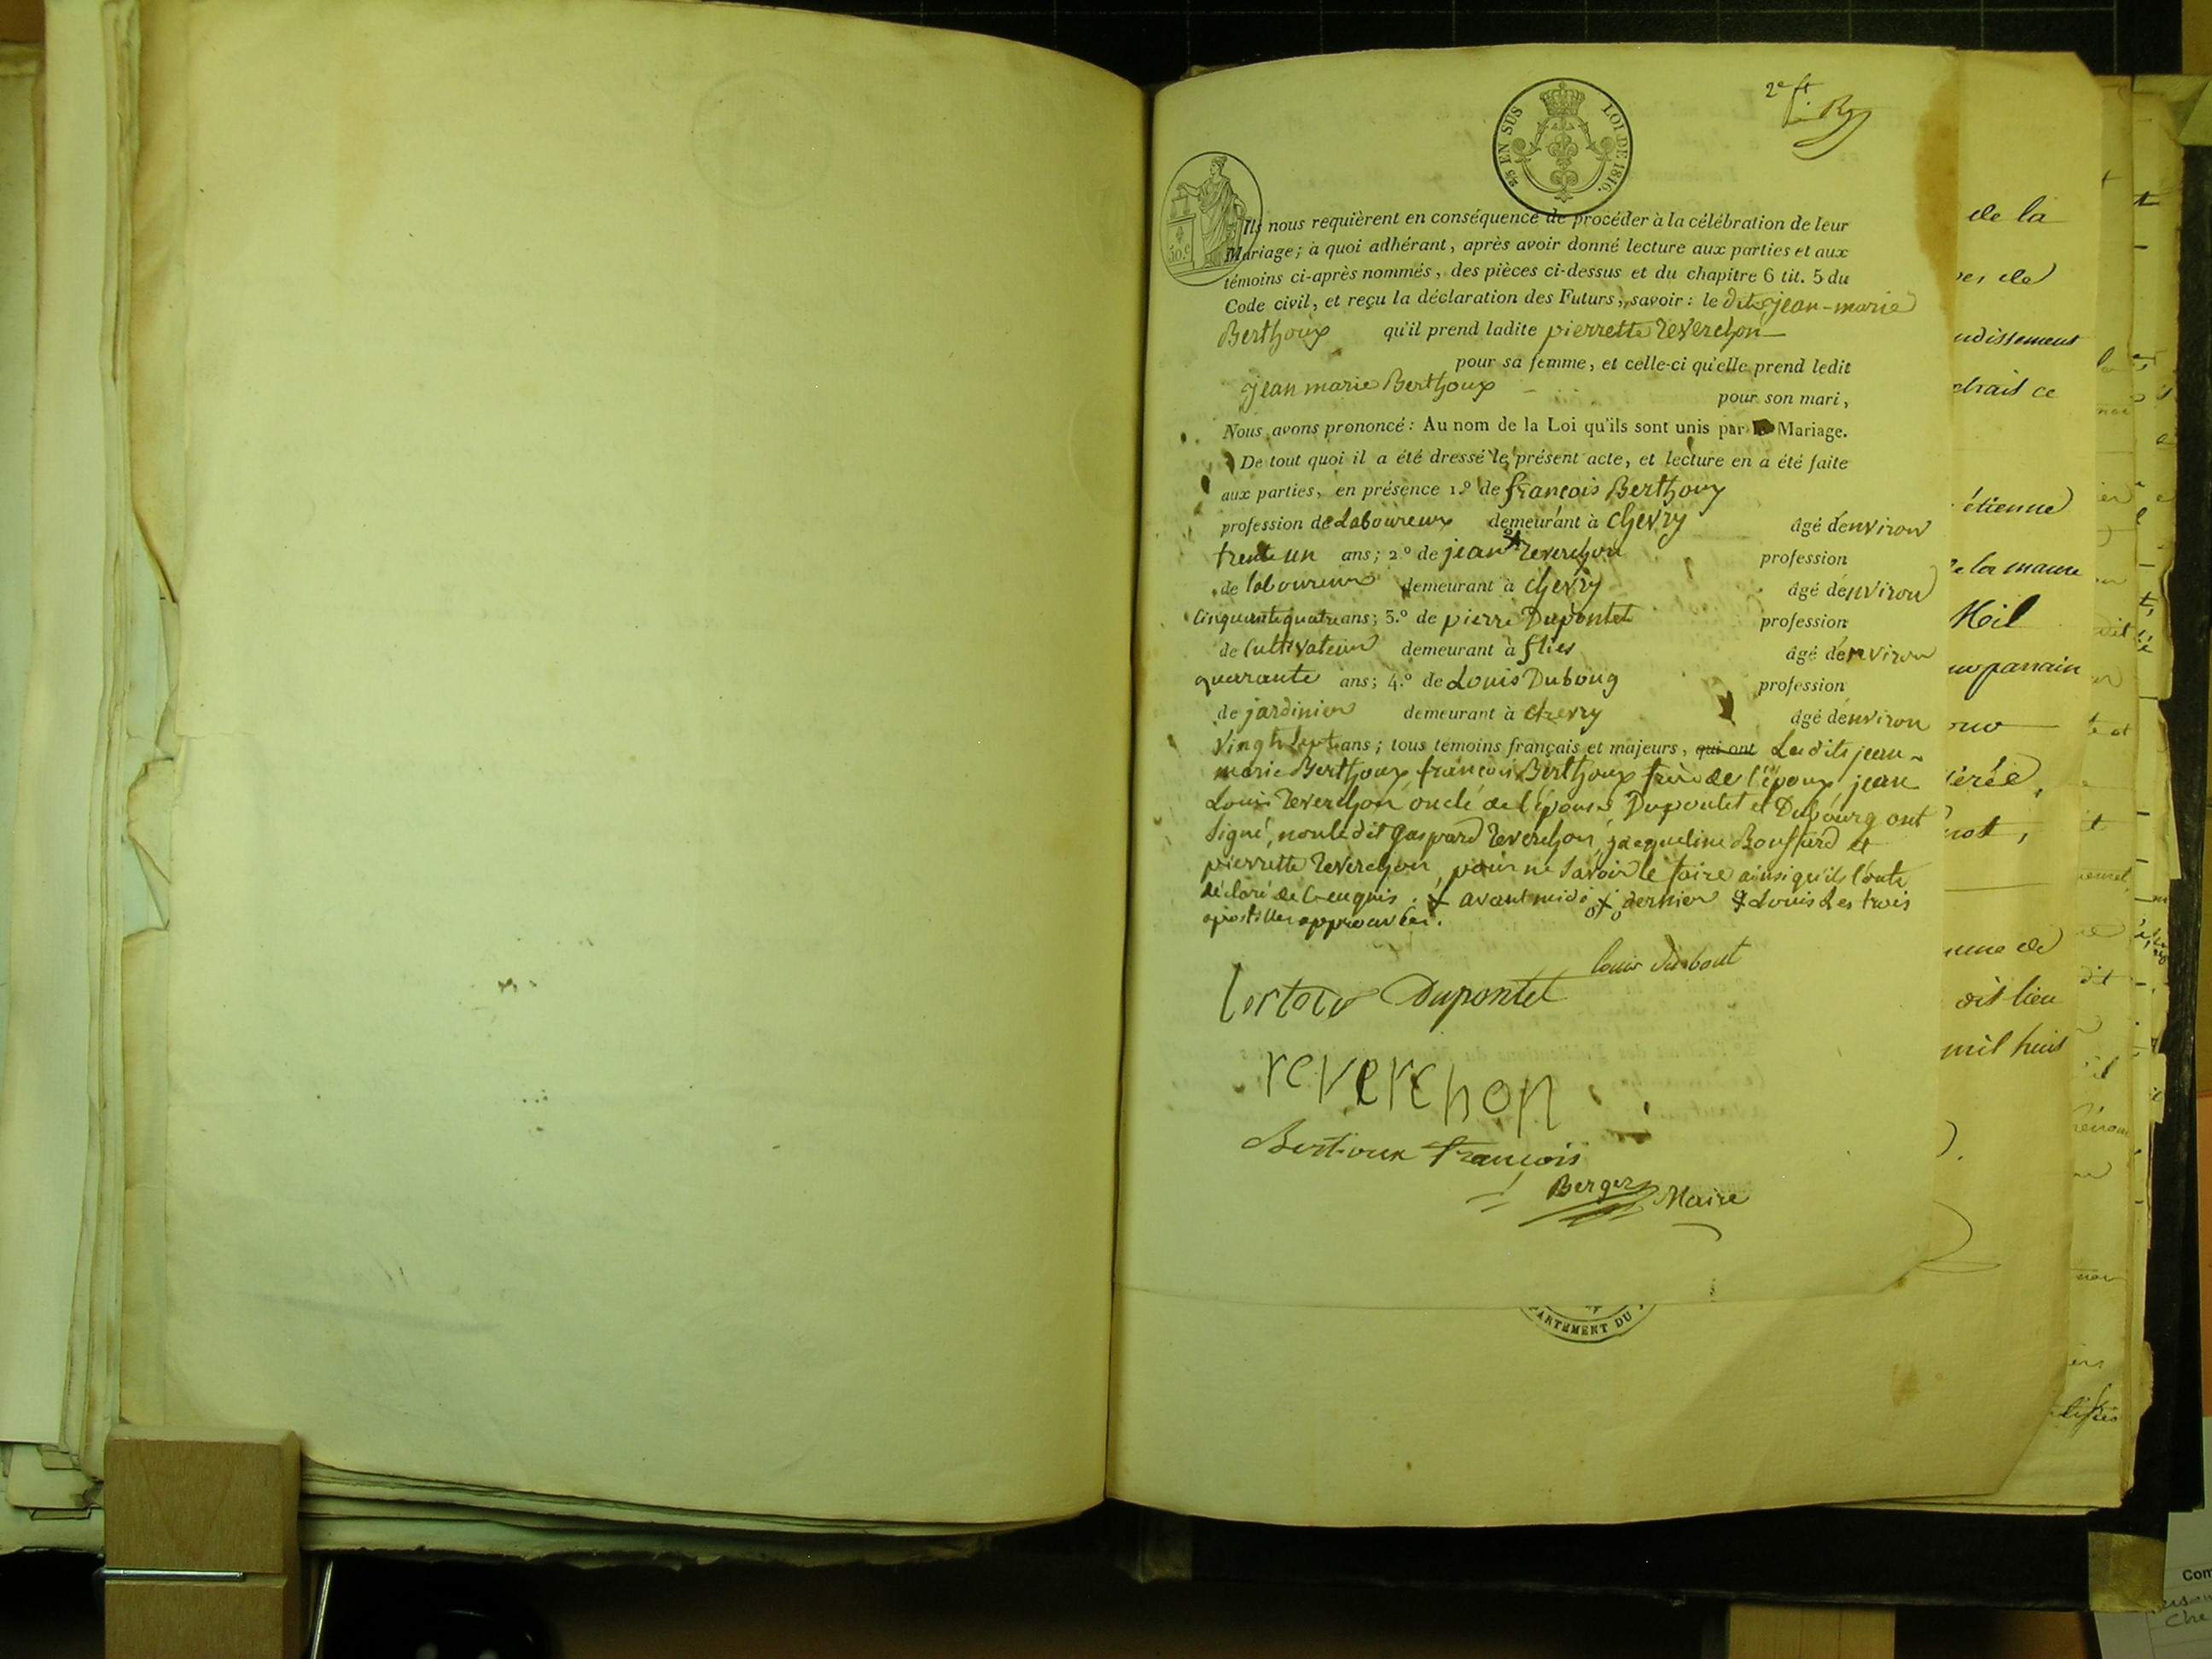 2e ft
2/5 EN SUS LOI DE 1816.
50. c
Ils nous requièrent en conséquence de procéder à la célébration de leur
Mariage; à quoi adhérant, après avoir donné lecture aux parties et aux
témoins ci-après nommés, des pièces ci-dessus et du chapitre 6 tit. 5 du
Code civil, et reçu la déclaration des Futurs, savoir: le dit jean-marie
Berthoux qu'il prend ladite pierrette Reverchon
pour sa femme, et celle-ci qu'elle prend ledit
jean marie Berthoux
pour son mari,
Nous avons prononcé: Au nom de la Loi qu'ils sont unis par Mariage.
De tout quoi il a été dressé le présent acte, et lecture en a été faite
aux parties, en présence 1.º de francois Berthoux
profession de Laboureur demeurant à Chevry âgé denviron
trente un ans; 2.º de jean Reverchon profession
de laboureur demeurant à Chevry âgé denviron
Cinquante quatre ans; 3.º de pierre Dupontet profession
de Cultivateur demeurant à flies âgé denviron
quarante ans; 4.º de Louis Duboug profession
de jardinier demeurant à Chevry âgé denviron
Vingt Sept ans; tous témoins français et majeurs, qui ont Lesdits jean-
marie Berthoux francois Berthoux frère de l'époux, jean
Louis Reverchon oncle de l'épouse Dupontet et Dubourg ont
Signé, non ledit Gaspard Reverchon, jacqueline Bouffard et
pierrette Reverchon, pour ne Savoir le faire ainsi qu'ils l'ont
déclaré de ce enquis. avant midi dernier Louis Les trois
apostilles approuvées.
louis dubout
Dupontet
reverchon
Bertoux francois
Berger Maire
ARTEMENT DU
de la
udissement
étienne
parrain
not,
dit lieu
mil huit